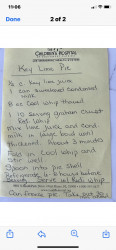 11:06
Done
2 of 2
CHILDREN'S HOSPITAL
Key Lime Pie
½ c Key lime juice
1 can sweetened condensed
milk
8 oz Cool whip thawed
1 10 serving Graham Crust
Mix lime juice and cond.
milk in large bowl until
thickened. About 5 minutes
Fold in Cool whip and
stir well
Spoon into pie shell
Refrigerate 6-8 hours before
Serving. Serve
Can freeze pie. Take out 30